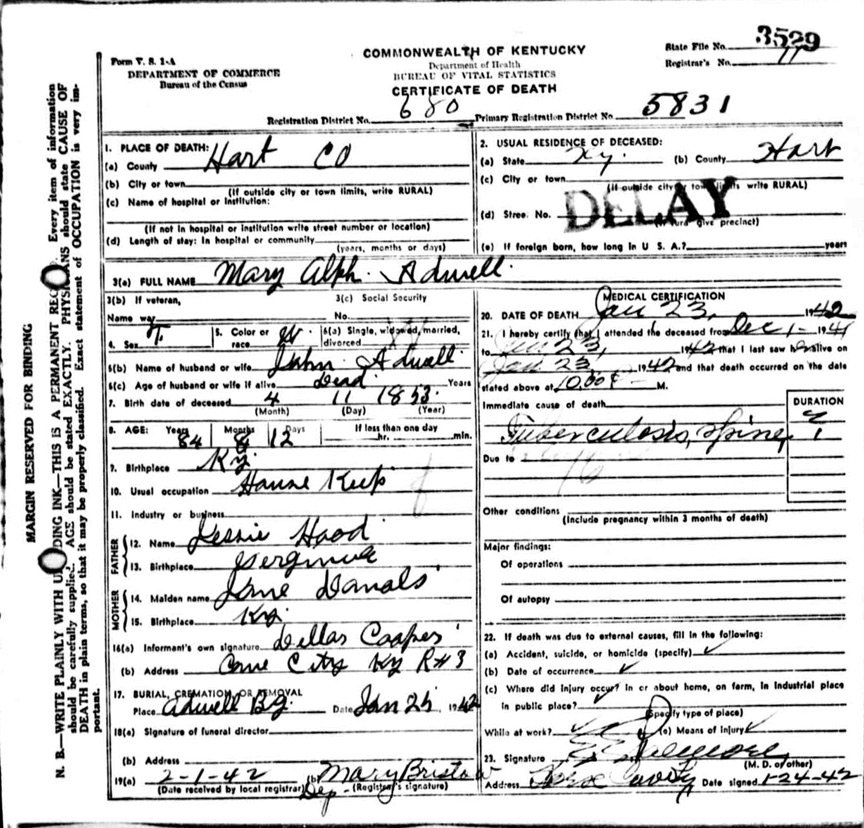 3529
Form V. S. 1-A
DEPARTMENT OF COMMERCE
Bureau of the Census
COMMONWEALTH OF KENTUCKY
Department of Health
BUREAU OF VITAL STATISTICS
CERTIFICATE OF DEATH
State File No.
Registrar's No. 11
Registration District No. 680 Primary Registration District No. 5831
1. PLACE OF DEATH:
(a) County Hart CO
(b) City or town
(If outside city or town limits, write RURAL)
(c) Name of hospital or institution:
(If not in hospital or institution write street number or location)
(d) Length of stay: In hospital or community
(years, months or days)
2. USUAL RESIDENCE OF DECEASED:
(a) State Ky. (b) County Hart
(c) City or town
(If outside city or town limits write RURAL)
DELAY
(d) Street No.
(If rural give precinct)
(e) If foreign born, how long in U. S. A.? years
3(a) FULL NAME Mary Alph. Adwell
3(b) If veteran,
Name war
3(c) Social Security
No.
4. Sex F 5. Color or race W. 6(a) Single, widowed, married, divorced
6(b) Name of husband or wife John Adwell
6(c) Age of husband or wife if alive Dead Years
7. Birth date of deceased 4 11 1853
(Month) (Day) (Year)
8. AGE: Years Months Days If less than one day
84 8 12 hr. min.
9. Birthplace Ky
10. Usual occupation House Keep
11. Industry or business
FATHER
12. Name Jessie Hood
13. Birthplace Verginia
MOTHER
14. Maiden name Jane Danals
15. Birthplace Ky.
16(a) Informant's own signature Dellas Cooper
(b) Address Cave City Ky R#3
17. BURIAL, CREMATION OR REMOVAL
Place Adwell B.g. Date Jan 25 1942
18(a) Signature of funeral director
(b) Address
19(a) 2-1-42 (b) Mary Bristow
(Date received by local registrar) Dep (Registrar's signature)
MEDICAL CERTIFICATION
20. DATE OF DEATH Jan 23, 1942
21. I hereby certify that I attended the deceased from Dec 1 - 1941
to Jan 23, 1942 that I last saw h alive on
Jan 23 1942 and that death occurred on the date
stated above at M.
Immediate cause of death
DURATION
Tuberculosis, Spine ?
Due to
Other conditions
(Include pregnancy within 3 months of death)
Major findings:
Of operations
Of autopsy
22. If death was due to external causes, fill in the following:
(a) Accident, suicide, or homicide (specify)
(b) Date of occurrence
(c) Where did injury occur? In or about home, on farm, in industrial place
in public place?
(Specify type of place)
While at work? (e) Means of injury
23. Signature
(M. D. or other)
Address Date signed 1-24-42
MARGIN RESERVED FOR BINDING
N. B.—WRITE PLAINLY WITH UNFADING INK—THIS IS A PERMANENT RECORD. Every item of information
should be carefully supplied. AGE should be stated EXACTLY. PHYSICIANS should state CAUSE OF
DEATH in plain terms, so that it may be properly classified. Exact statement of OCCUPATION is very im-
portant.